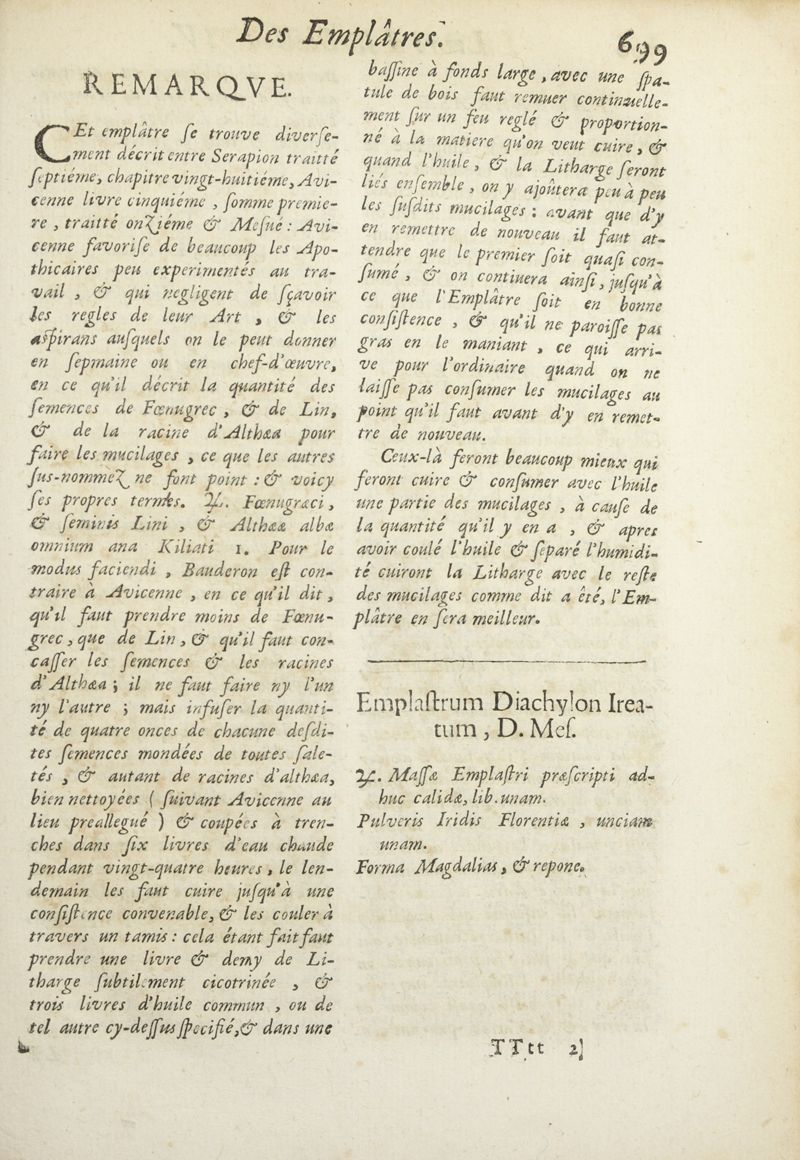 Des Emplâtres. 699
REMARQVE.
CEt emplâtre ſe trouve diverſe-
ment décrit entre Serapion traitté
ſeptiéme, chapitre vingt-huitiéme, Avi-
cenne livre cinquiéme , ſomme premie-
re , traitté onZiéme & Meſué : Avi-
cenne favoriſe de beaucoup les Apo-
thicaires peu experimentés au tra-
vail , & qui negligent de ſçavoir
les regles de leur Art , & les
aſpirans auſquels on le peut donner
en ſepmaine ou en chef-d'œuvre,
en ce qu'il décrit la quantité des
ſemences de Fœnugrec , & de Lin,
& de la racine d'Althæa pour
faire les mucilages , ce que les autres
ſus-nommeZ ne font point : & voicy
ſes propres termes. ♃. Fœnugræci ,
& ſeminis Lini , & Althææ albæ
omnium ana Kiliati 1. Pour le
modus faciendi , Bauderon eſt con-
traire à Avicenne , en ce qu'il dit ,
qu'il faut prendre moins de Fœnu-
grec , que de Lin , & qu'il faut con-
caſſer les ſemences & les racines
d'Althæa ; il ne faut faire ny l'un
ny l'autre ; mais infuſer la quanti-
té de quatre onces de chacune deſdi-
tes ſemences mondées de toutes ſale-
tés , & autant de racines d'althæa,
bien nettoyées ( ſuivant Avicenne au
lieu preallegué ) & coupées à tren-
ches dans ſix livres d'eau chaude
pendant vingt-quatre heures , le len-
demain les faut cuire juſqu'à une
conſiſtence convenable, & les couler à
travers un tamis : cela étant fait faut
prendre une livre & demy de Li-
tharge ſubtilement cicotrinée , &
trois livres d'huile commun , ou de
tel autre cy-deſſus ſpecifié,& dans une
baſſine à fonds large , avec une ſpa-
tule de bois faut remuer continuelle-
ment ſur un feu reglé & proportion-
né à la matiere qu'on veut cuire , &
quand l'huile , & la Litharge ſeront
liés enſemble , on y ajoûtera peu à peu
les ſuſdits mucilages ; avant que d'y
en remettre de nouveau il faut at-
tendre que le premier ſoit quaſi con-
ſumé , & on continuera ainſi , juſqu'à
ce que l'Emplâtre ſoit en bonne
conſiſtence , & qu'il ne paroiſſe pas
gras en le maniant , ce qui arri-
ve pour l'ordinaire quand on ne
laiſſe pas conſumer les mucilages au
point qu'il faut avant d'y en remet-
tre de nouveau.
Ceux-là feront beaucoup mieux qui
feront cuire & conſumer avec l'huile
une partie des mucilages , à cauſe de
la quantité qu'il y en a , & apres
avoir coulé l'huile & ſeparé l'humidi-
té cuiront la Litharge avec le reſte
des mucilages comme dit a été, l'Em-
plâtre en ſera meilleur.
Emplaſtrum Diachylon Irea-
tum , D. Meſ.
♃. Maſſæ Emplaſtri præſcripti ad-
huc calidæ, lib. unam.
Pulveris Iridis Florentiæ , unciam
unam.
Forma Magdalias , & repone.
TTtt 2